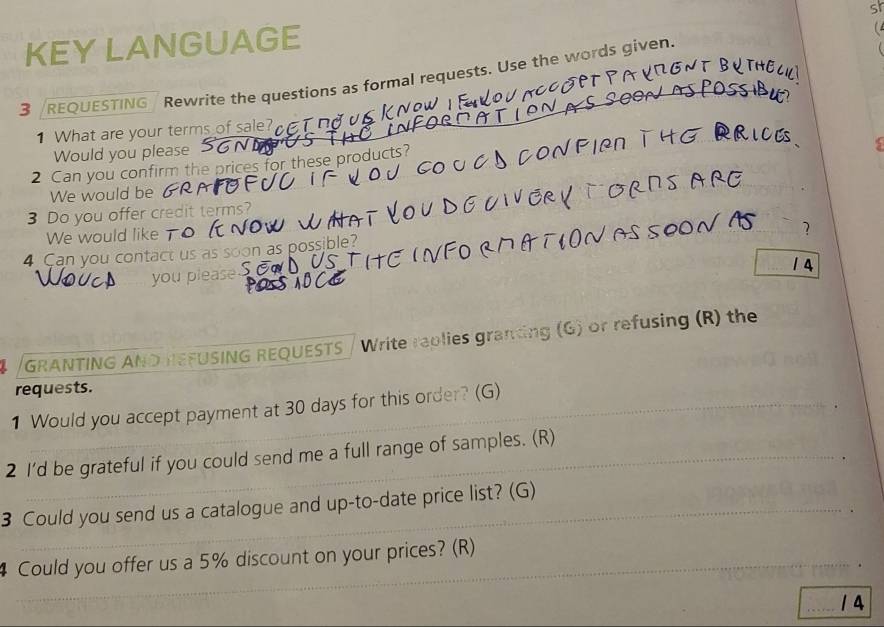 KEY LANGUAGE
3 REQUESTING Rewrite the questions as formal requests. Use the words given.
1 What are your terms of sale?
Would you please LET ME US KNOW IF YOU ACCEPT PAYMENT BY THE
SEND US THE INFORMATION AS SOON AS POSSIBLE?
2 Can you confirm the prices for these products?
We would be GRATEFUL IF YOU COULD CONFIRM THE PRICES.
3 Do you offer credit terms?
We would like TO KNOW WHAT YOU DELIVERY TERMS ARE
4 Can you contact us as soon as possible?
WOULD you please SEND US THE INFORMATION AS SOON AS ?
POSSIBLE
/ 4
4 GRANTING AND REFUSING REQUESTS Write replies granting (G) or refusing (R) the
requests.
1 Would you accept payment at 30 days for this order? (G)
2 I'd be grateful if you could send me a full range of samples. (R)
3 Could you send us a catalogue and up-to-date price list? (G)
4 Could you offer us a 5% discount on your prices? (R)
...... / 4